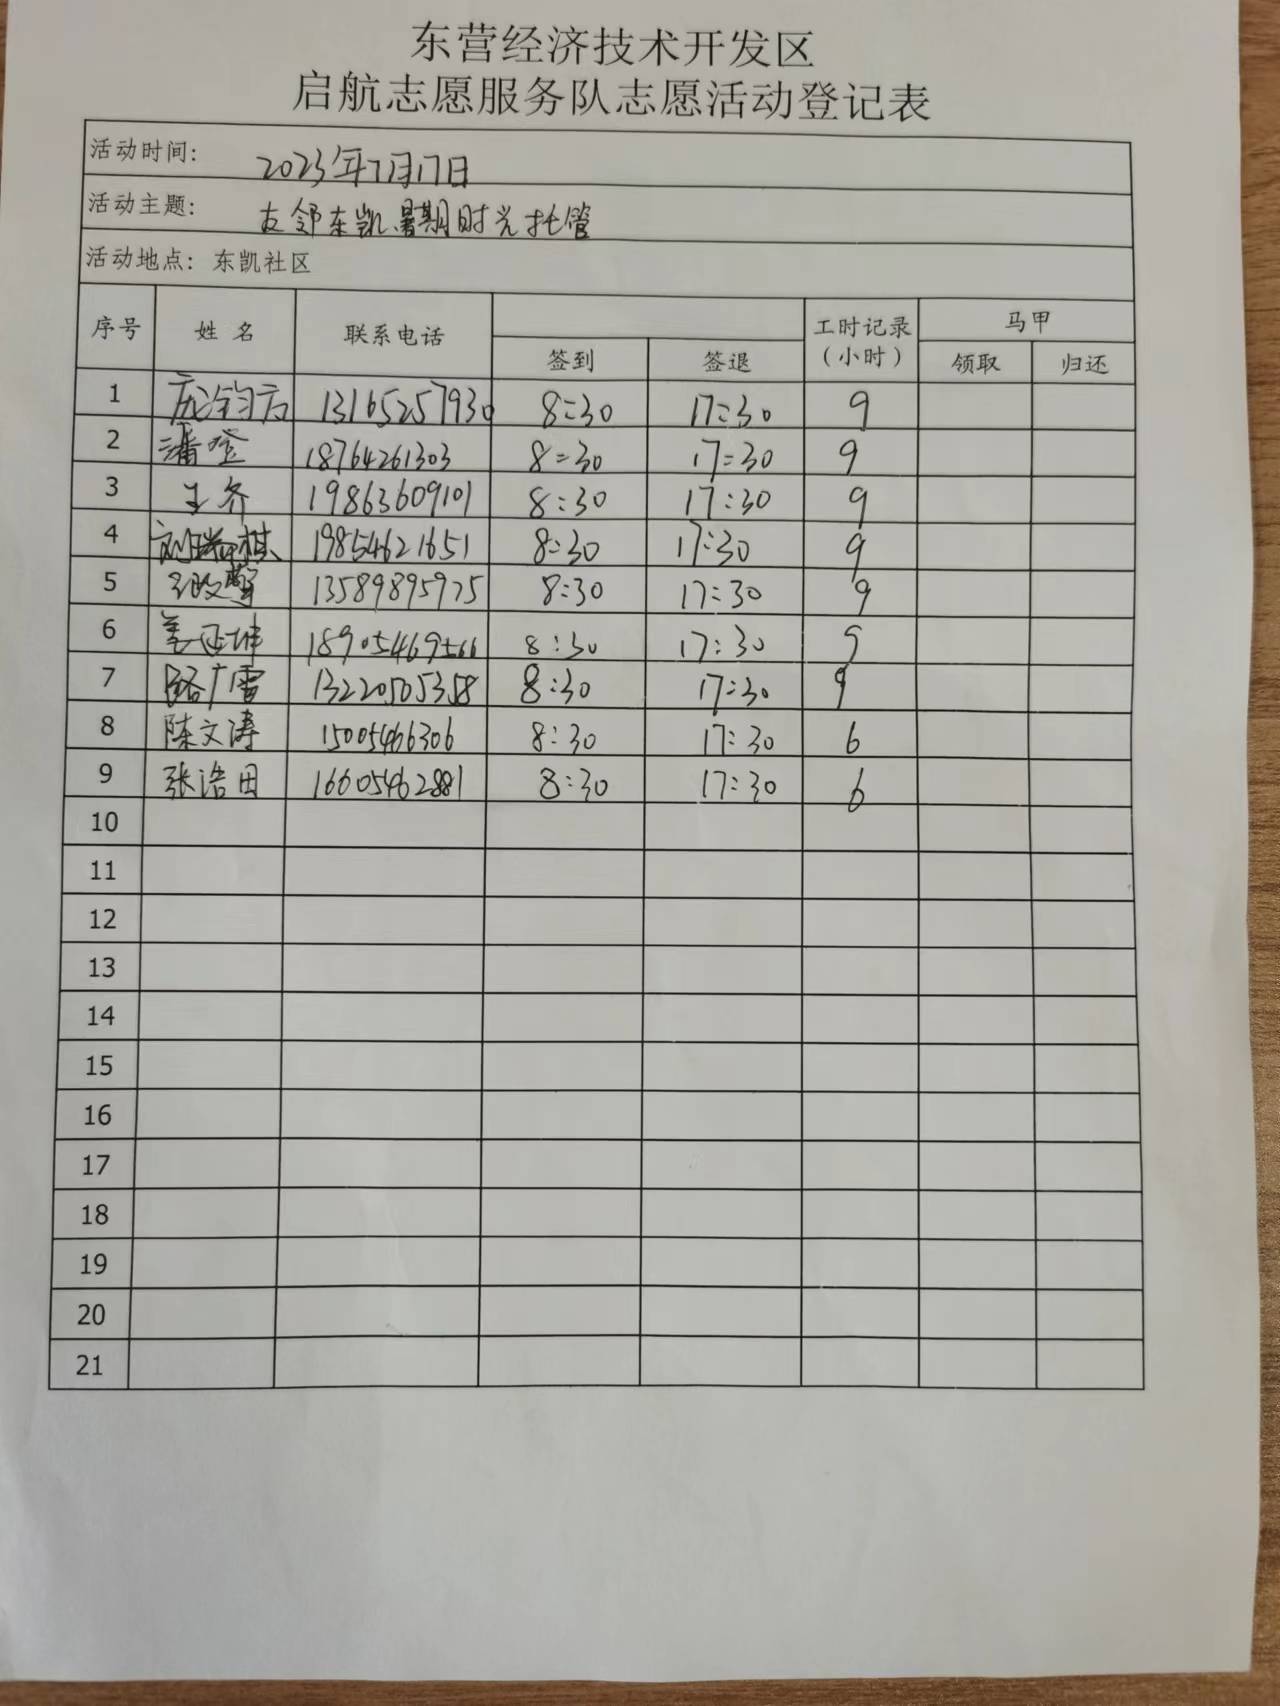 东营经济技术开发区
启航志愿服务队志愿活动登记表
活动时间: 2023年7月17日
活动主题: 友邻东凯暑期时光托管
活动地点: 东凯社区
序号 姓名 联系电话 签到 签退 工时记录(小时) 马甲 领取 归还
1 13165257930 8:30 17:30 9
2 潘登 18764261303 8:30 17:30 9
3 19863609101 8:30 17:30 9
4 刘瑞祺 19854621651 8:30 17:30 9
5 13589895975 8:30 17:30 9
6 姜延坤 18905469566 8:30 17:30 9
7 路广雷 13220505358 8:30 17:30 9
8 陈文涛 15005466306 8:30 17:30 6
9 张浩田 16605462881 8:30 17:30 6
10
11
12
13
14
15
16
17
18
19
20
21